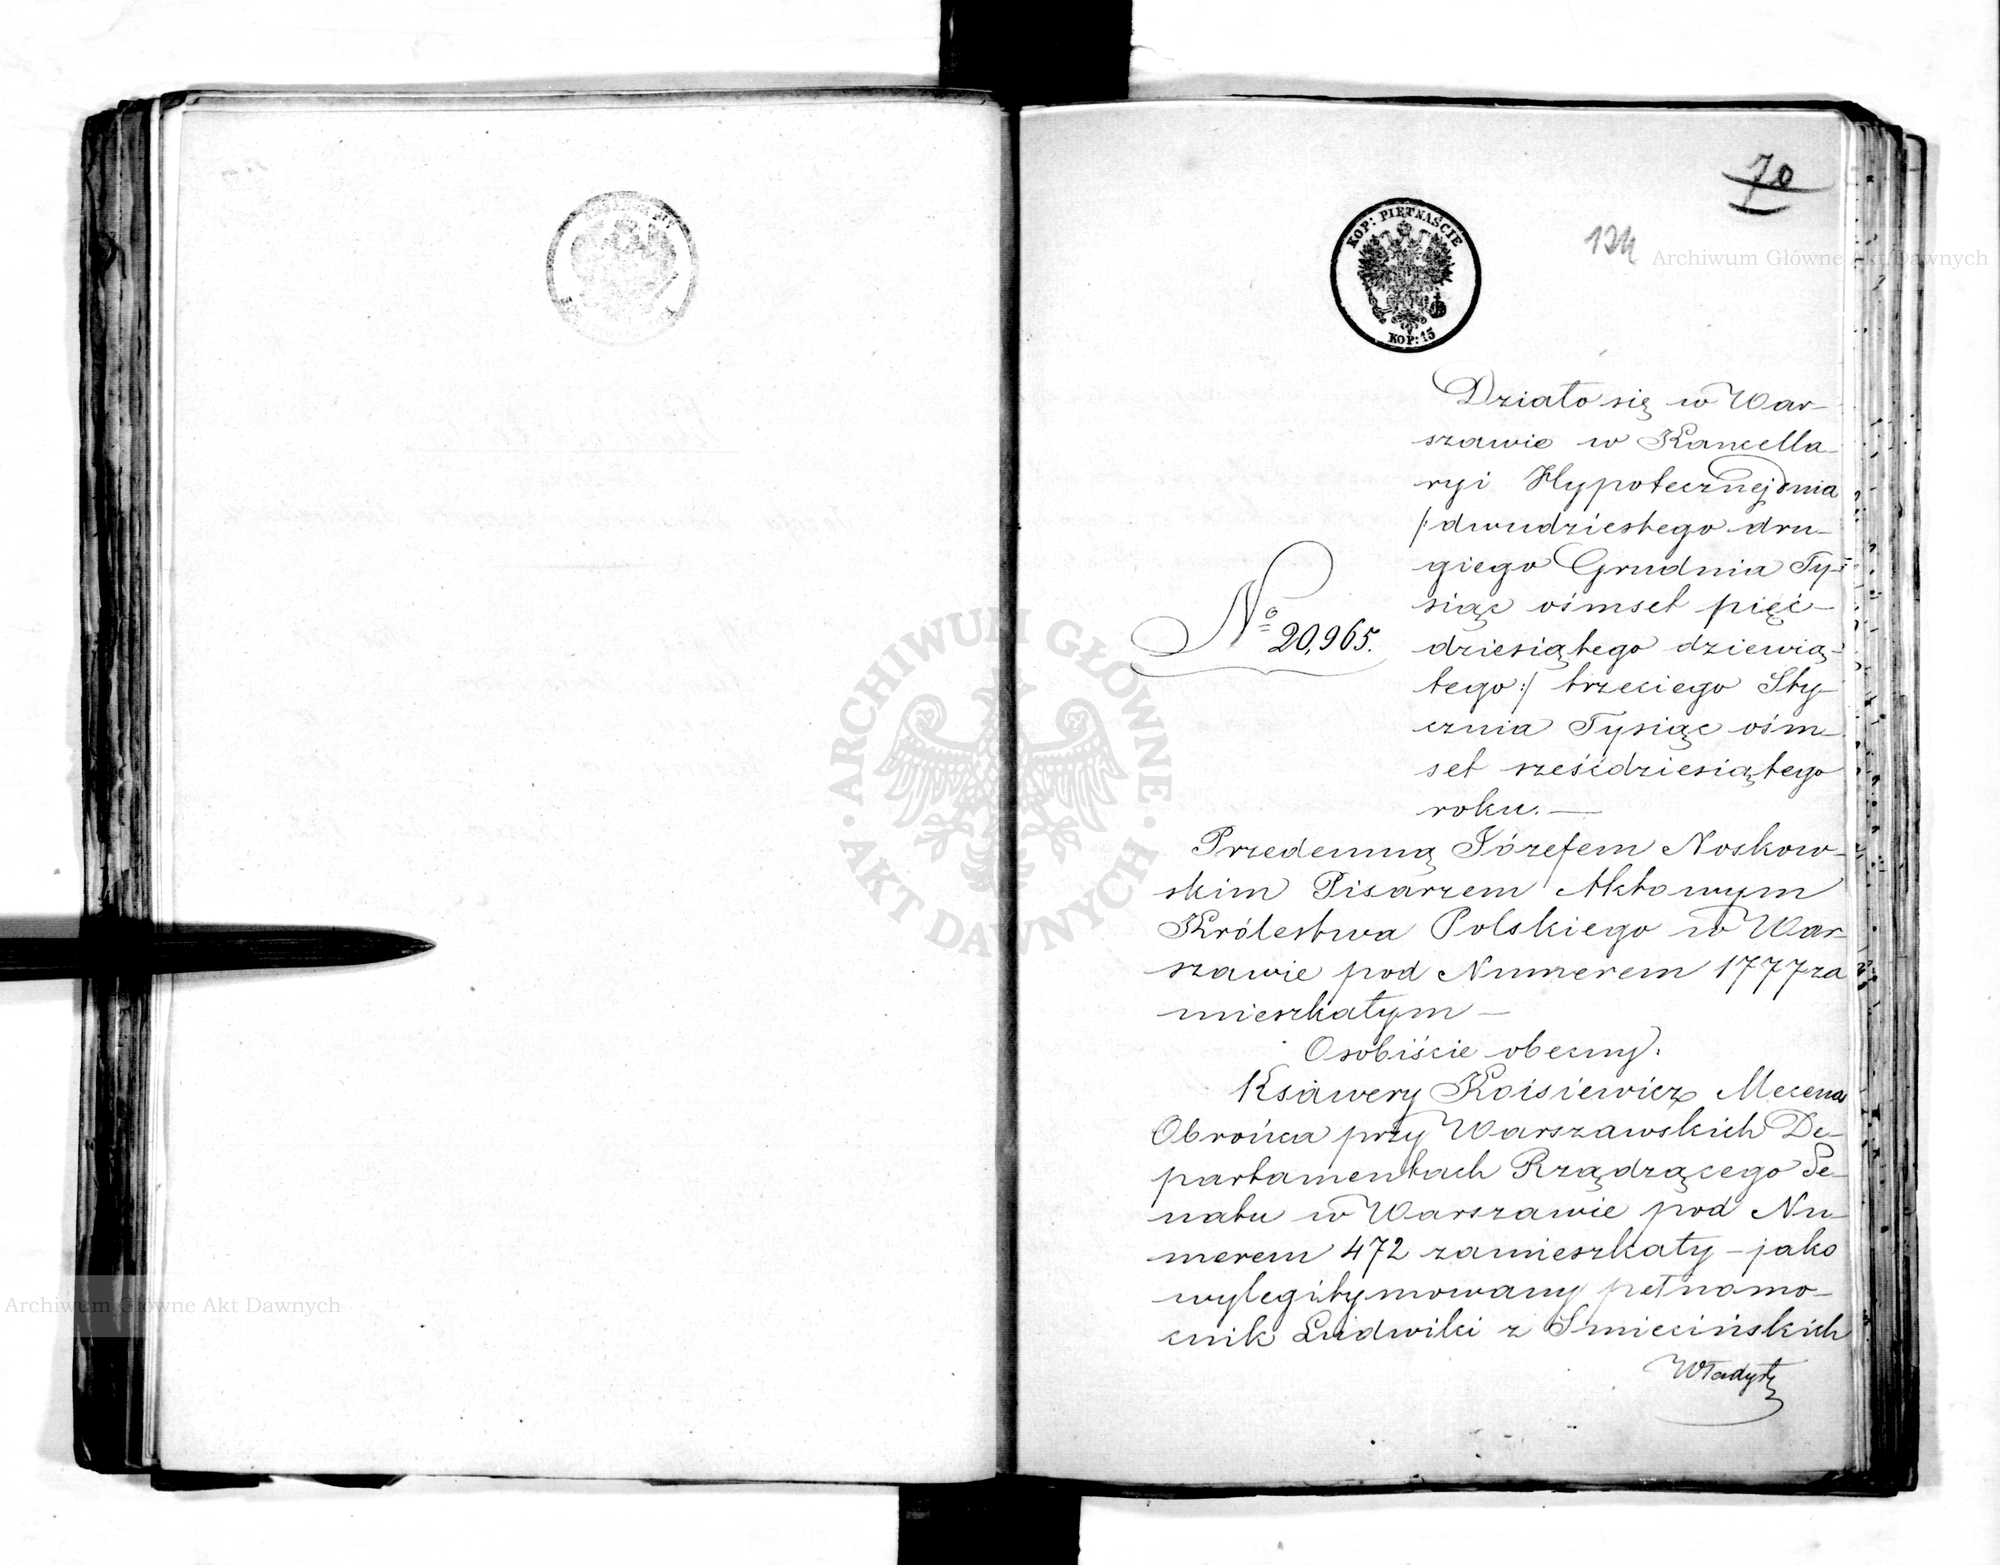 70
124
KOP: PIĘTNAŚCIE
KOP: 15
Działo się w War-
szawie w Kancella-
ryi Hypotecznej dnia
/: dwudziestego dru-
giego Grudnia Ty-
siąc ośmset pięć-
dziesiątego dziewią-
tego :/ trzeciego Sty-
cznia Tysiąc ośm-
set sześćdziesiątego
roku. —
No 20,965.
Przedemną Józefem Noskow-
skim Pisarzem Aktowym
Królestwa Polskiego w War-
szawie pod Numerem 1777 za
mieszkałym —
Osobiście obecny:
Ksawery Koisiewicz Mecenas
Obrońca przy Warszawskich De-
partamentach Rządzącego Se-
natu w Warszawie pod Nu-
merem 472 zamieszkały – jako
wylegitymowany pełnamo-
cnik Ludwiki z Smiecińskich
Władysł
ARCHIWUM GŁÓWNE
AKT DAWNYCH
Archiwum Główne Akt Dawnych
Archiwum Główne Akt Dawnych